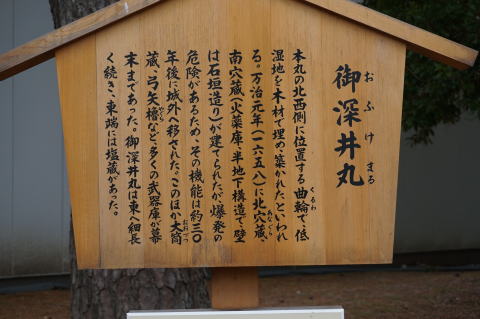 御深井丸
おふけまる
本丸の北西側に位置する曲輪で、低
くるわ
湿地を木材で埋め、築かれたといわれ
る。万治元年(一六五八)に北穴蔵、
あなぐら
南穴蔵(火薬庫、半地下構造で壁
は石垣造り)が建てられたが爆発の
危険があるため、その機能は約三〇
年後に城外へ移された。このほか大筒
おおづつ
蔵、弓矢櫓など多くの武器庫が幕
やぐら
末まであった。御深井丸は東へ細長
く続き、東端には塩蔵があった。